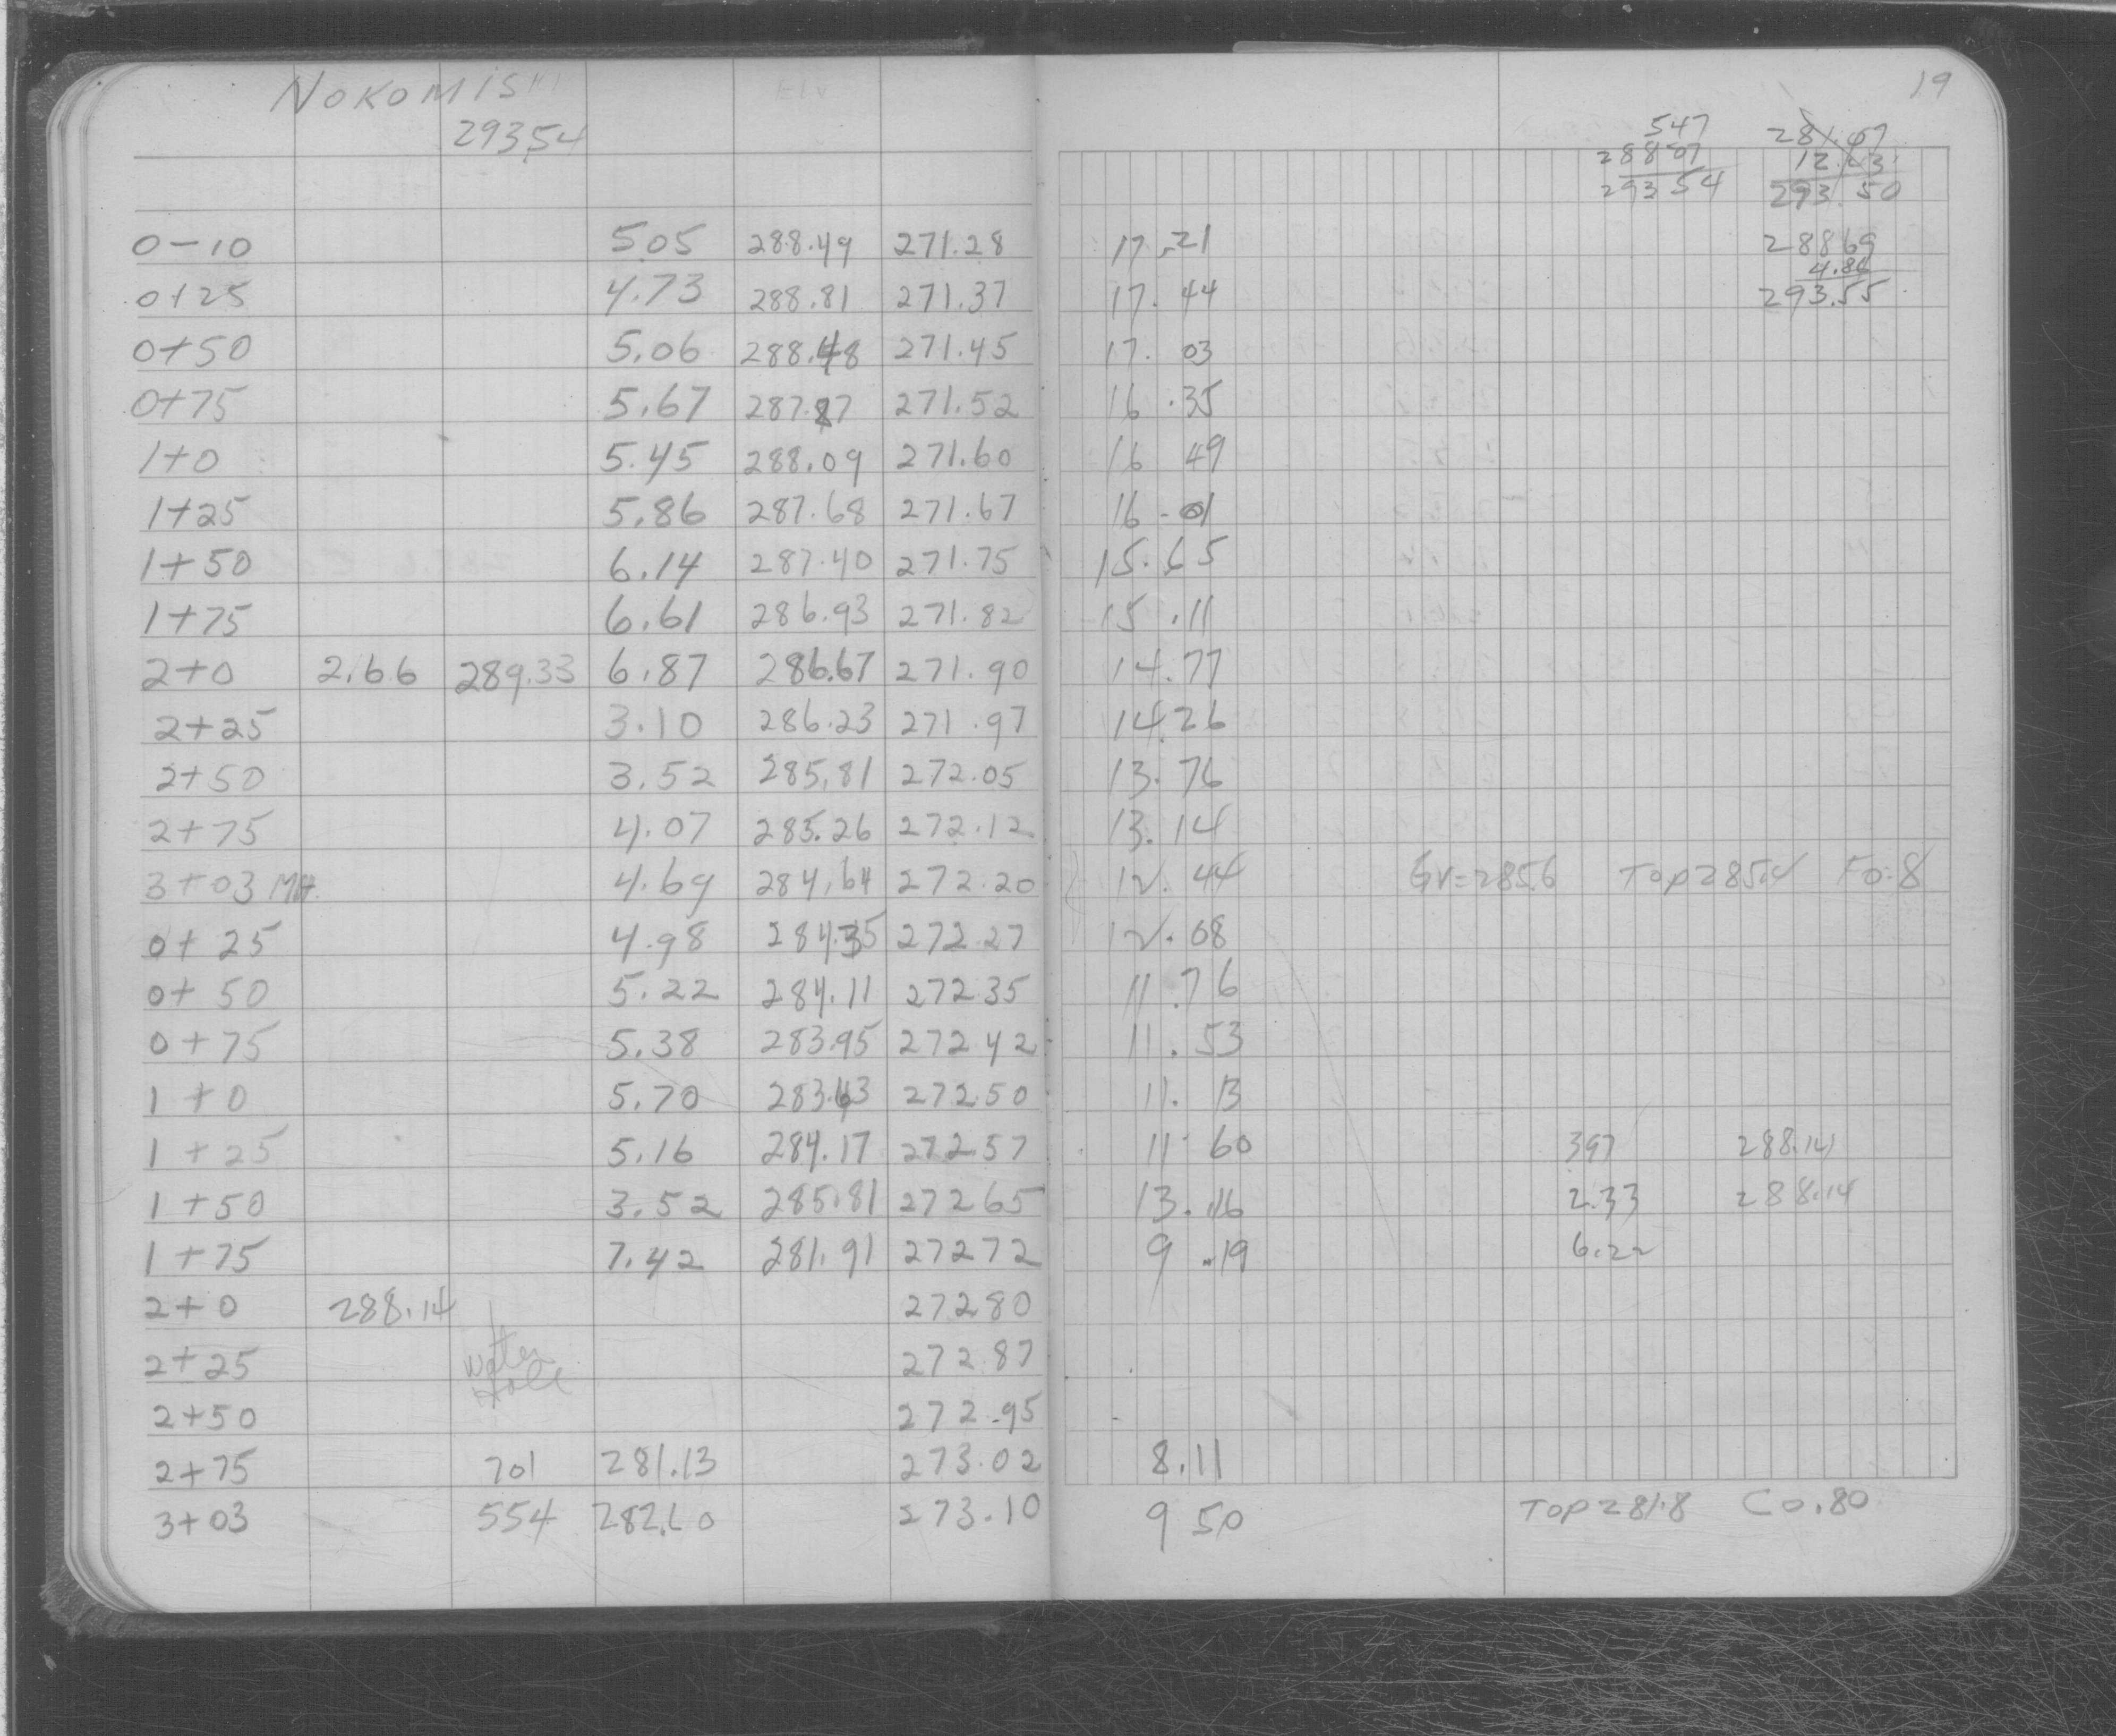 NOKOMIS
Elv
19
293.54
547 281.07
288 07 12.43
293 54 293.50
0-10 5.05 288.49 271.28 17.21 28869
4.86
0+25 4.73 288.81 271.37 17.44 293.55
0+50 5.06 288.48 271.45 17.03
0+75 5.67 287.87 271.52 16.35
1+0 5.45 288.09 271.60 16 49
1+25 5.86 287.68 271.67 16-01
1+50 6.14 287.40 271.75 15.65
1+75 6.61 286.93 271.82 15.11
2+0 2.66 289.33 6.87 286.67 271.90 14.77
2+25 3.10 286.23 271.97 14.26
2+50 3.52 285.81 272.05 13.76
2+75 4.07 285.26 272.12 13.14
3+03 MH. 4.69 284.64 272.20 12.44 Gr=285.6 Top 285.4 Fo.8
0+25 4.98 284.35 272.27 12.08
0+50 5.22 284.11 272.35 11.76
0+75 5.38 283.95 272 42 11.53
1+0 5.70 283.63 272.50 11.13
1+25 5.16 284.17 272.57 11 60 397 288.14
1+50 3.52 285.81 272 65 13.16 2.33 288.14
1+75 7.42 281.91 27272 9.19 6.22
2+0 288.14 27280
2+25 water 272.87
Hole
2+50 272.95
2+75 701 281.13 273.02 8.11
3+03 554 282.60 273.10 9 50 Top 281.8 Co.80